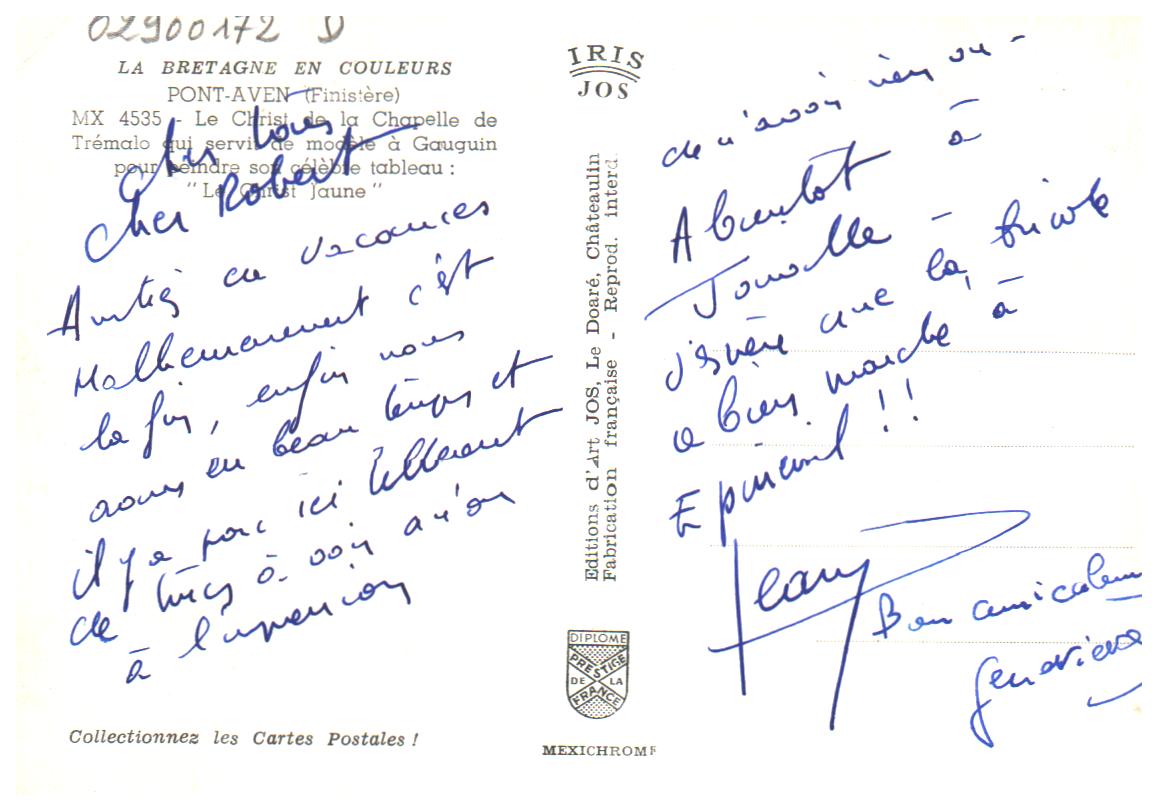 02900172 D
LA BRETAGNE EN COULEURS
PONT-AVEN (Finistère)
MX 4535 - Le Christ de la Chapelle de
Trémalo qui servit de modèle à Gauguin
pour peindre son célèbre tableau :
" Le Christ Jaune "
Chers tous
Cher Robert
Amitiés en vacances
Malheureusement c'est
la fin, enfin nous
avons eu beau temps et
il y a parc ici tellement
de trucs à voir qu'on
à l'impression
Collectionnez les Cartes Postales !
IRIS
JOS
Editions d'Art JOS, Le Doaré, Châteaulin
Fabrication française - Reprod. interd.
DIPLOME
PRESTIGE
DE LA
FRANCE
MEXICHROME
de n'avoir rien vu -
A bientôt à
Joinville -
j'espère que la fricote
a bien marché à
Epineuil !!
Jean
Bien amicalem
Geneviève